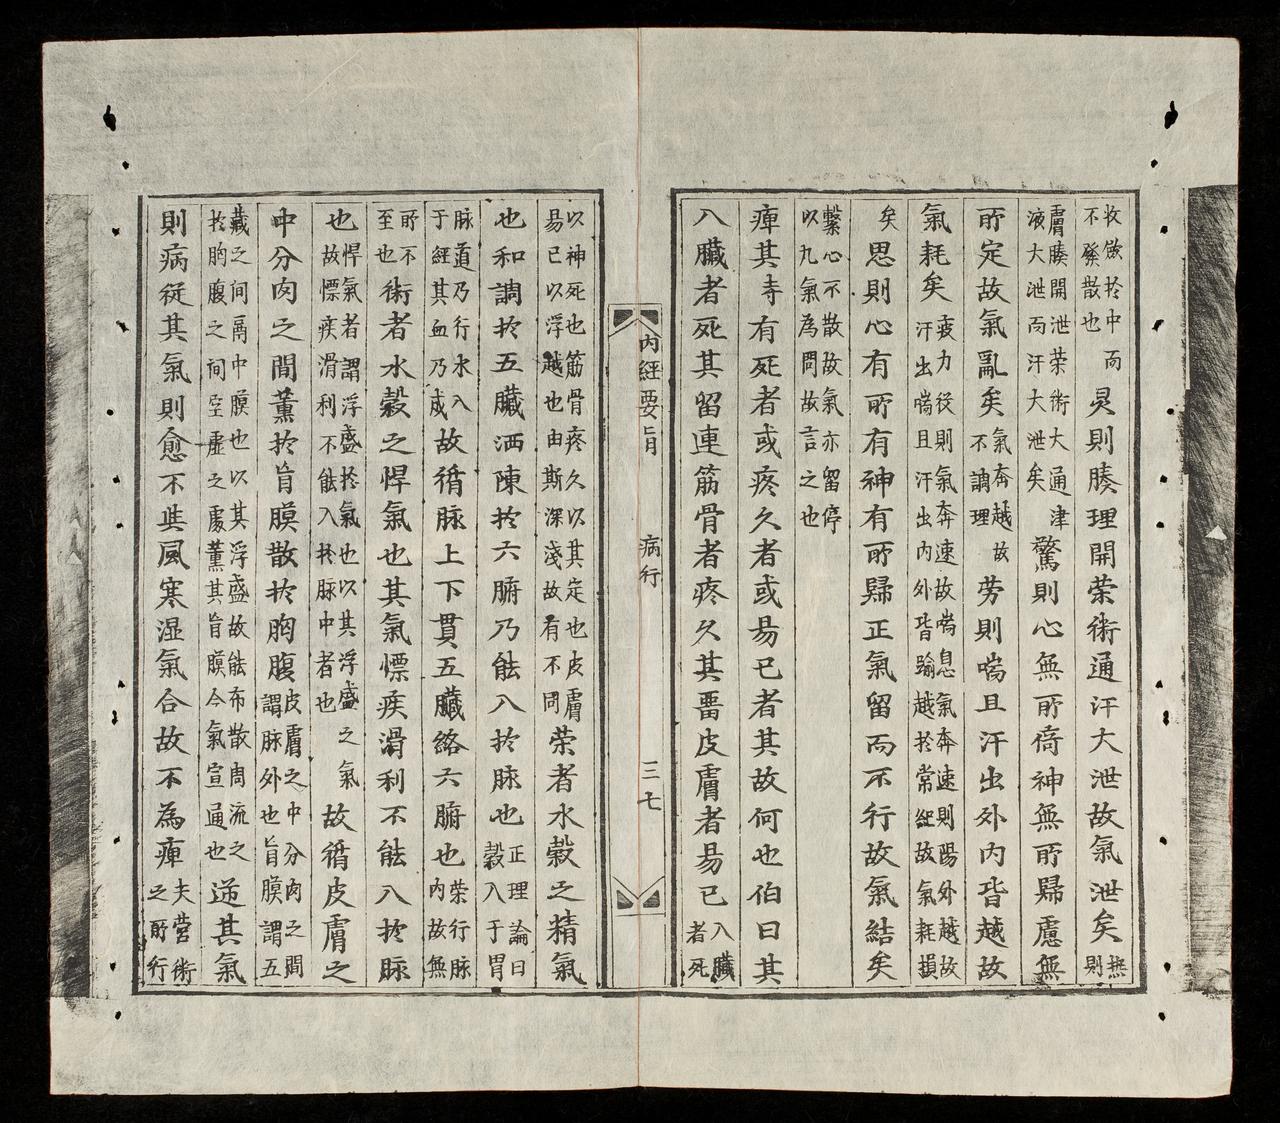 攸斂於中而不發散也炅則腠理開荣術通汗大泄故氣泄矣㷊則
膚腠開泄荣術大通津液大泄而汗大泄矣驚則心無所倚神無所歸慮無
所定故氣亂矣氣奔越不調理故勞則喘且汗出外內皆越故
氣耗矣疲力役則氣奔速故喘息氣奔速則陽外越故汗出喘且汗出內外皆踰越於常紀故氣耗損
矣思則心有所有神有所歸正氣留而不行故氣結矣
繫心不散故氣亦留停以九氣為問故言之也
痺其寺有死者或疼久者或昜已者其故何也伯曰其
入臟者死其留連筋骨者疼久其畱皮膚者昜已入臟者死
內經要旨 病行 三七
以神死也筋骨疼久以其定也皮膚昜已以浮越也由斯深淺故有不同荣者水穀之精氣
也和調於五臟洒陳於六腑乃能入於脉也正理論曰穀入于胃
脉道乃行水入于經其血乃成故循脉上下貫五臟絡六腑也荣行脉內故無
所不至也術者水穀之悍氣也其氣慓疾滑利不能入於脉
也悍氣者謂浮盛於氣也以其浮盛之氣故慓疾滑利不能入於脉中者也故循皮膚之
中分肉之間薰於肓膜散於胸腹皮膚之中分肉之間謂脉外也肓膜謂五
藏之間鬲中膜也以其浮盛故能布散周流之於胸腹之间空虛之處薰其肓膜令氣宣通也逆其氣
則病従其氣則愈不與風寒湿氣合故不為痺夫营術之所行